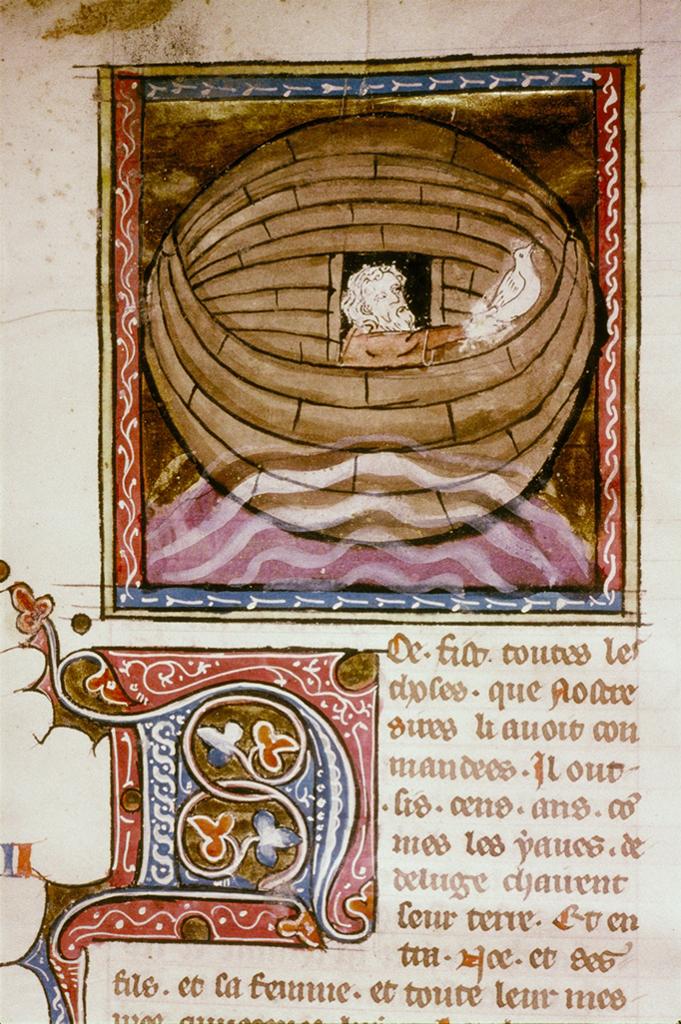 Noe. fist. toutes les
choses. que Nostre
sires li auoit con
mandees. Il out
.sis. cens. ans. co
mes les yaues. de
deluge chairent
seur terre. Et en
tra. Noe. et ses
fils. et sa femme. et toute leur mes